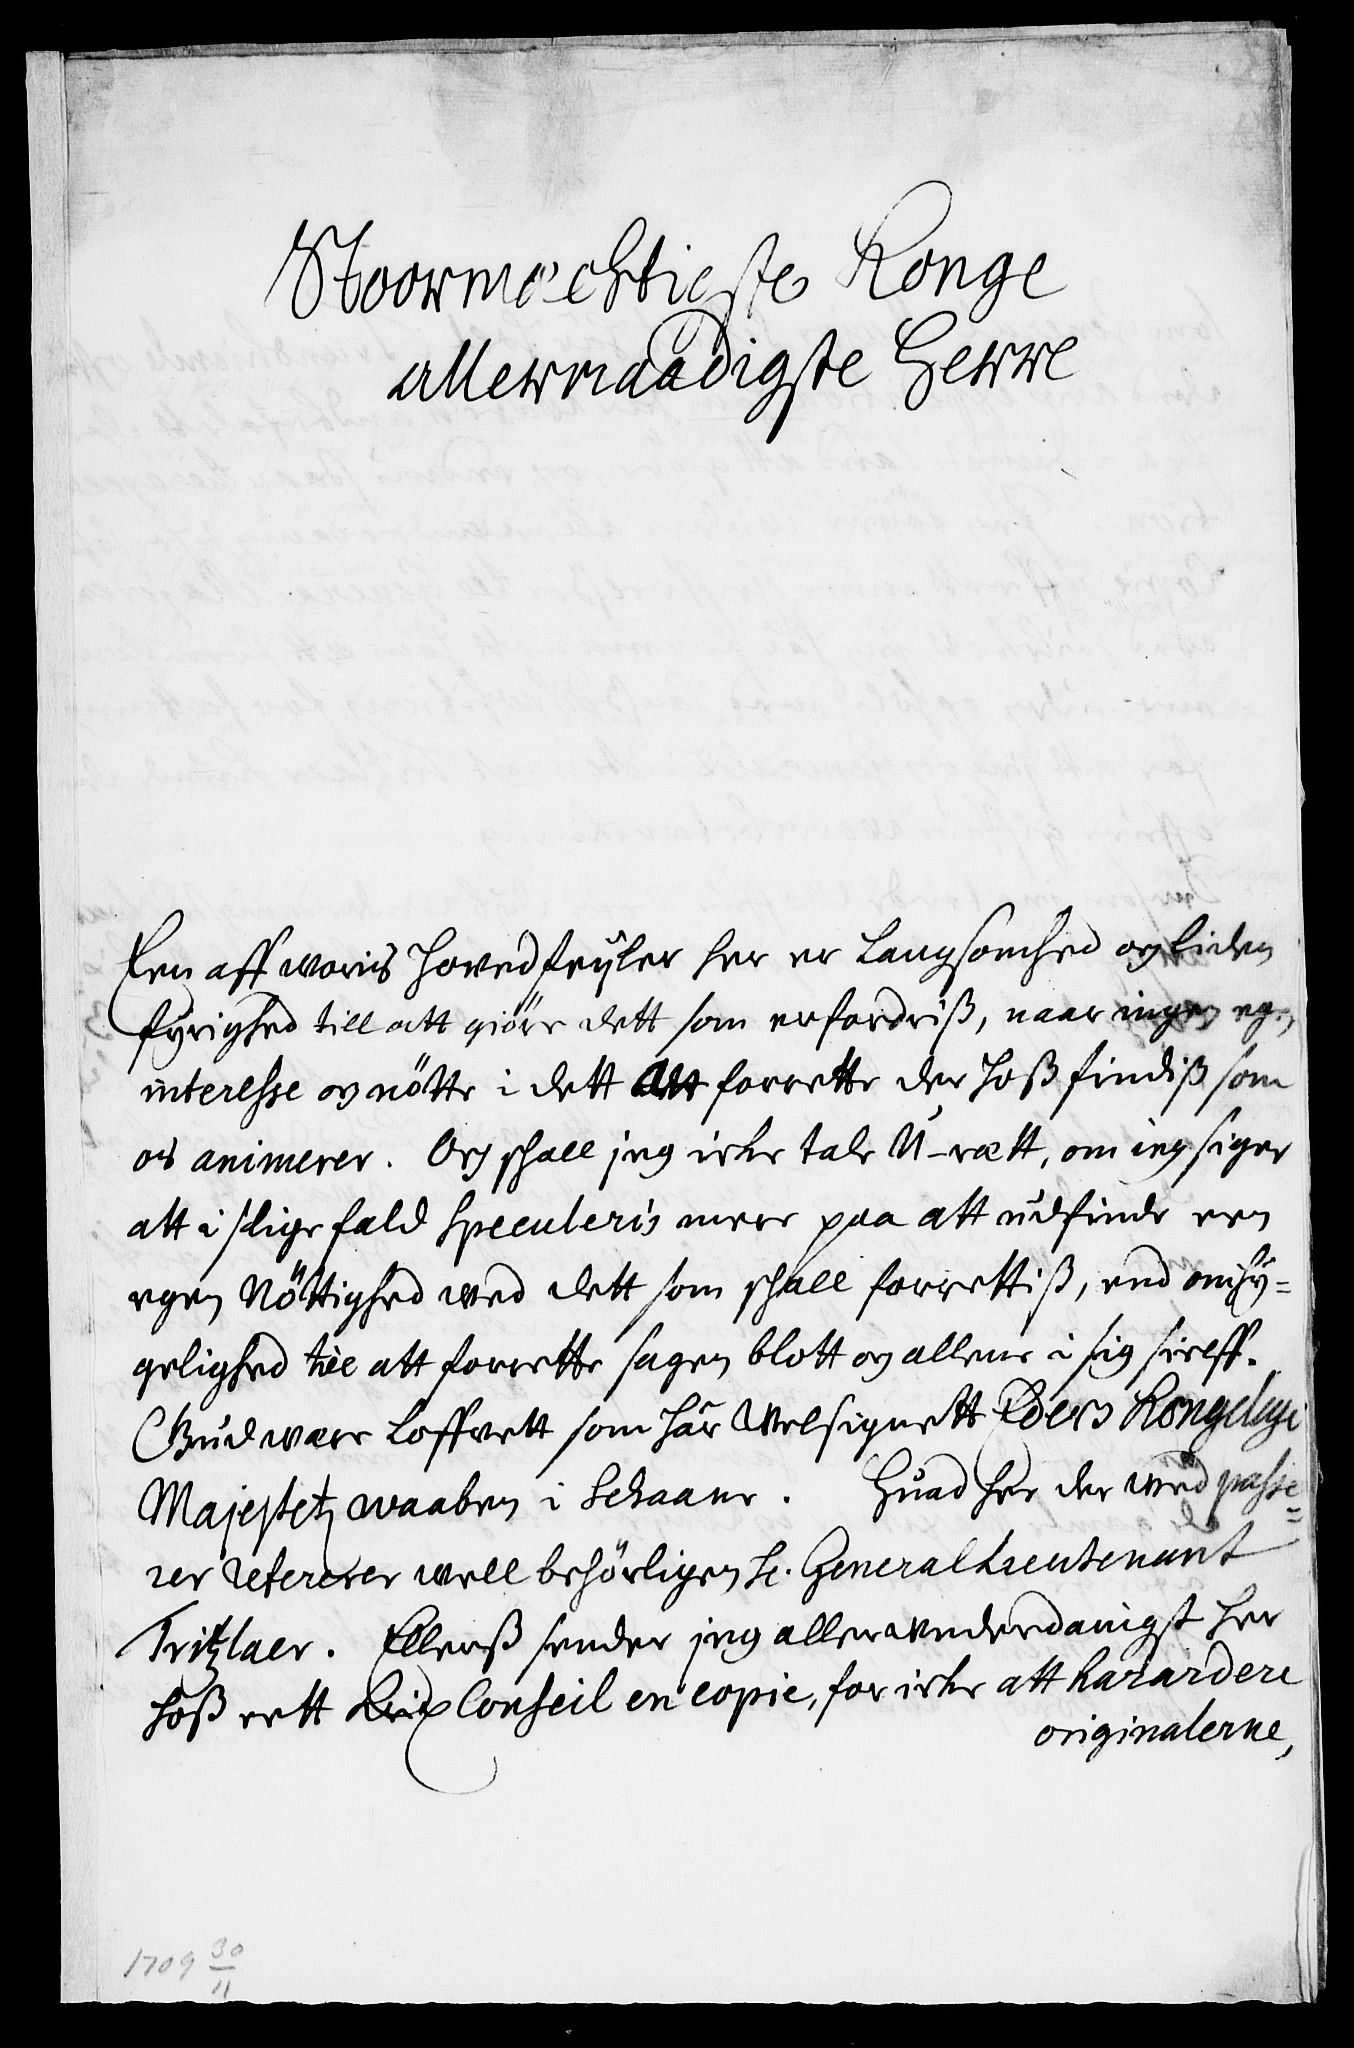 Stoormächtigste Konge
allernaadigste Herre
Een aff woris hoved feyler her er langsomhed og liden
fyrighed till att giöre dett som erfordriß, naar ingen egen
interesse og nötte i dett att forrette der hoß findiß som
os animerer. Og schall jeg icke tale U-rætt, om jeg siger
att i slige fald speculeris mere paa att udfinde een
egen Nöttighed wed dett som schall forrettiß, end omhy=
gelighed till att forrette sagen blott og allene i sig sielff.
Gud være loffvett som har Welsignett Eders Kongelige
Majestetz waaben i Schaane. Huad her der wed passe=
rer refererer well behörligen H. General Lieutenant
Tritzlaer. Ellerß sender jeg allerunderdanigst her
hoß eett Krigs Conseil en copie, for icke att hazardere
originalerne,
1709 30/11